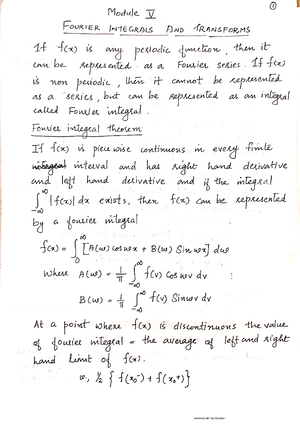 ①
Module V
FOURIER INTEGRALS AND TRANSFORMS
If f(x) is any periodic function, then it
can be represented as a Fourier series. If f(x)
is non periodic, then it cannot be represented
as a series, but can be represented as an integral
called Fourier integral.
Fourier integral theorem
If f(x) is piecewise continuous in every finite
interval and has right hand derivative
and left hand derivative and if the integral
∫_{-∞}^{∞} |f(x)| dx exists, then f(x) can be represented
by a fourier integral
f(x) = ∫_0^∞ [A(w) cos wx + B(w) Sin wx] dw
Where A(w) = 1/π ∫_{-∞}^{∞} f(v) Cos wv dv
B(w) = 1/π ∫_{-∞}^{∞} f(v) Sin wv dv
At a point where f(x) is discontinuous the value
of fourier integral = the average of left and right
hand limit of f(x).
½ { f(x₀⁻) + f(x₀⁺) }